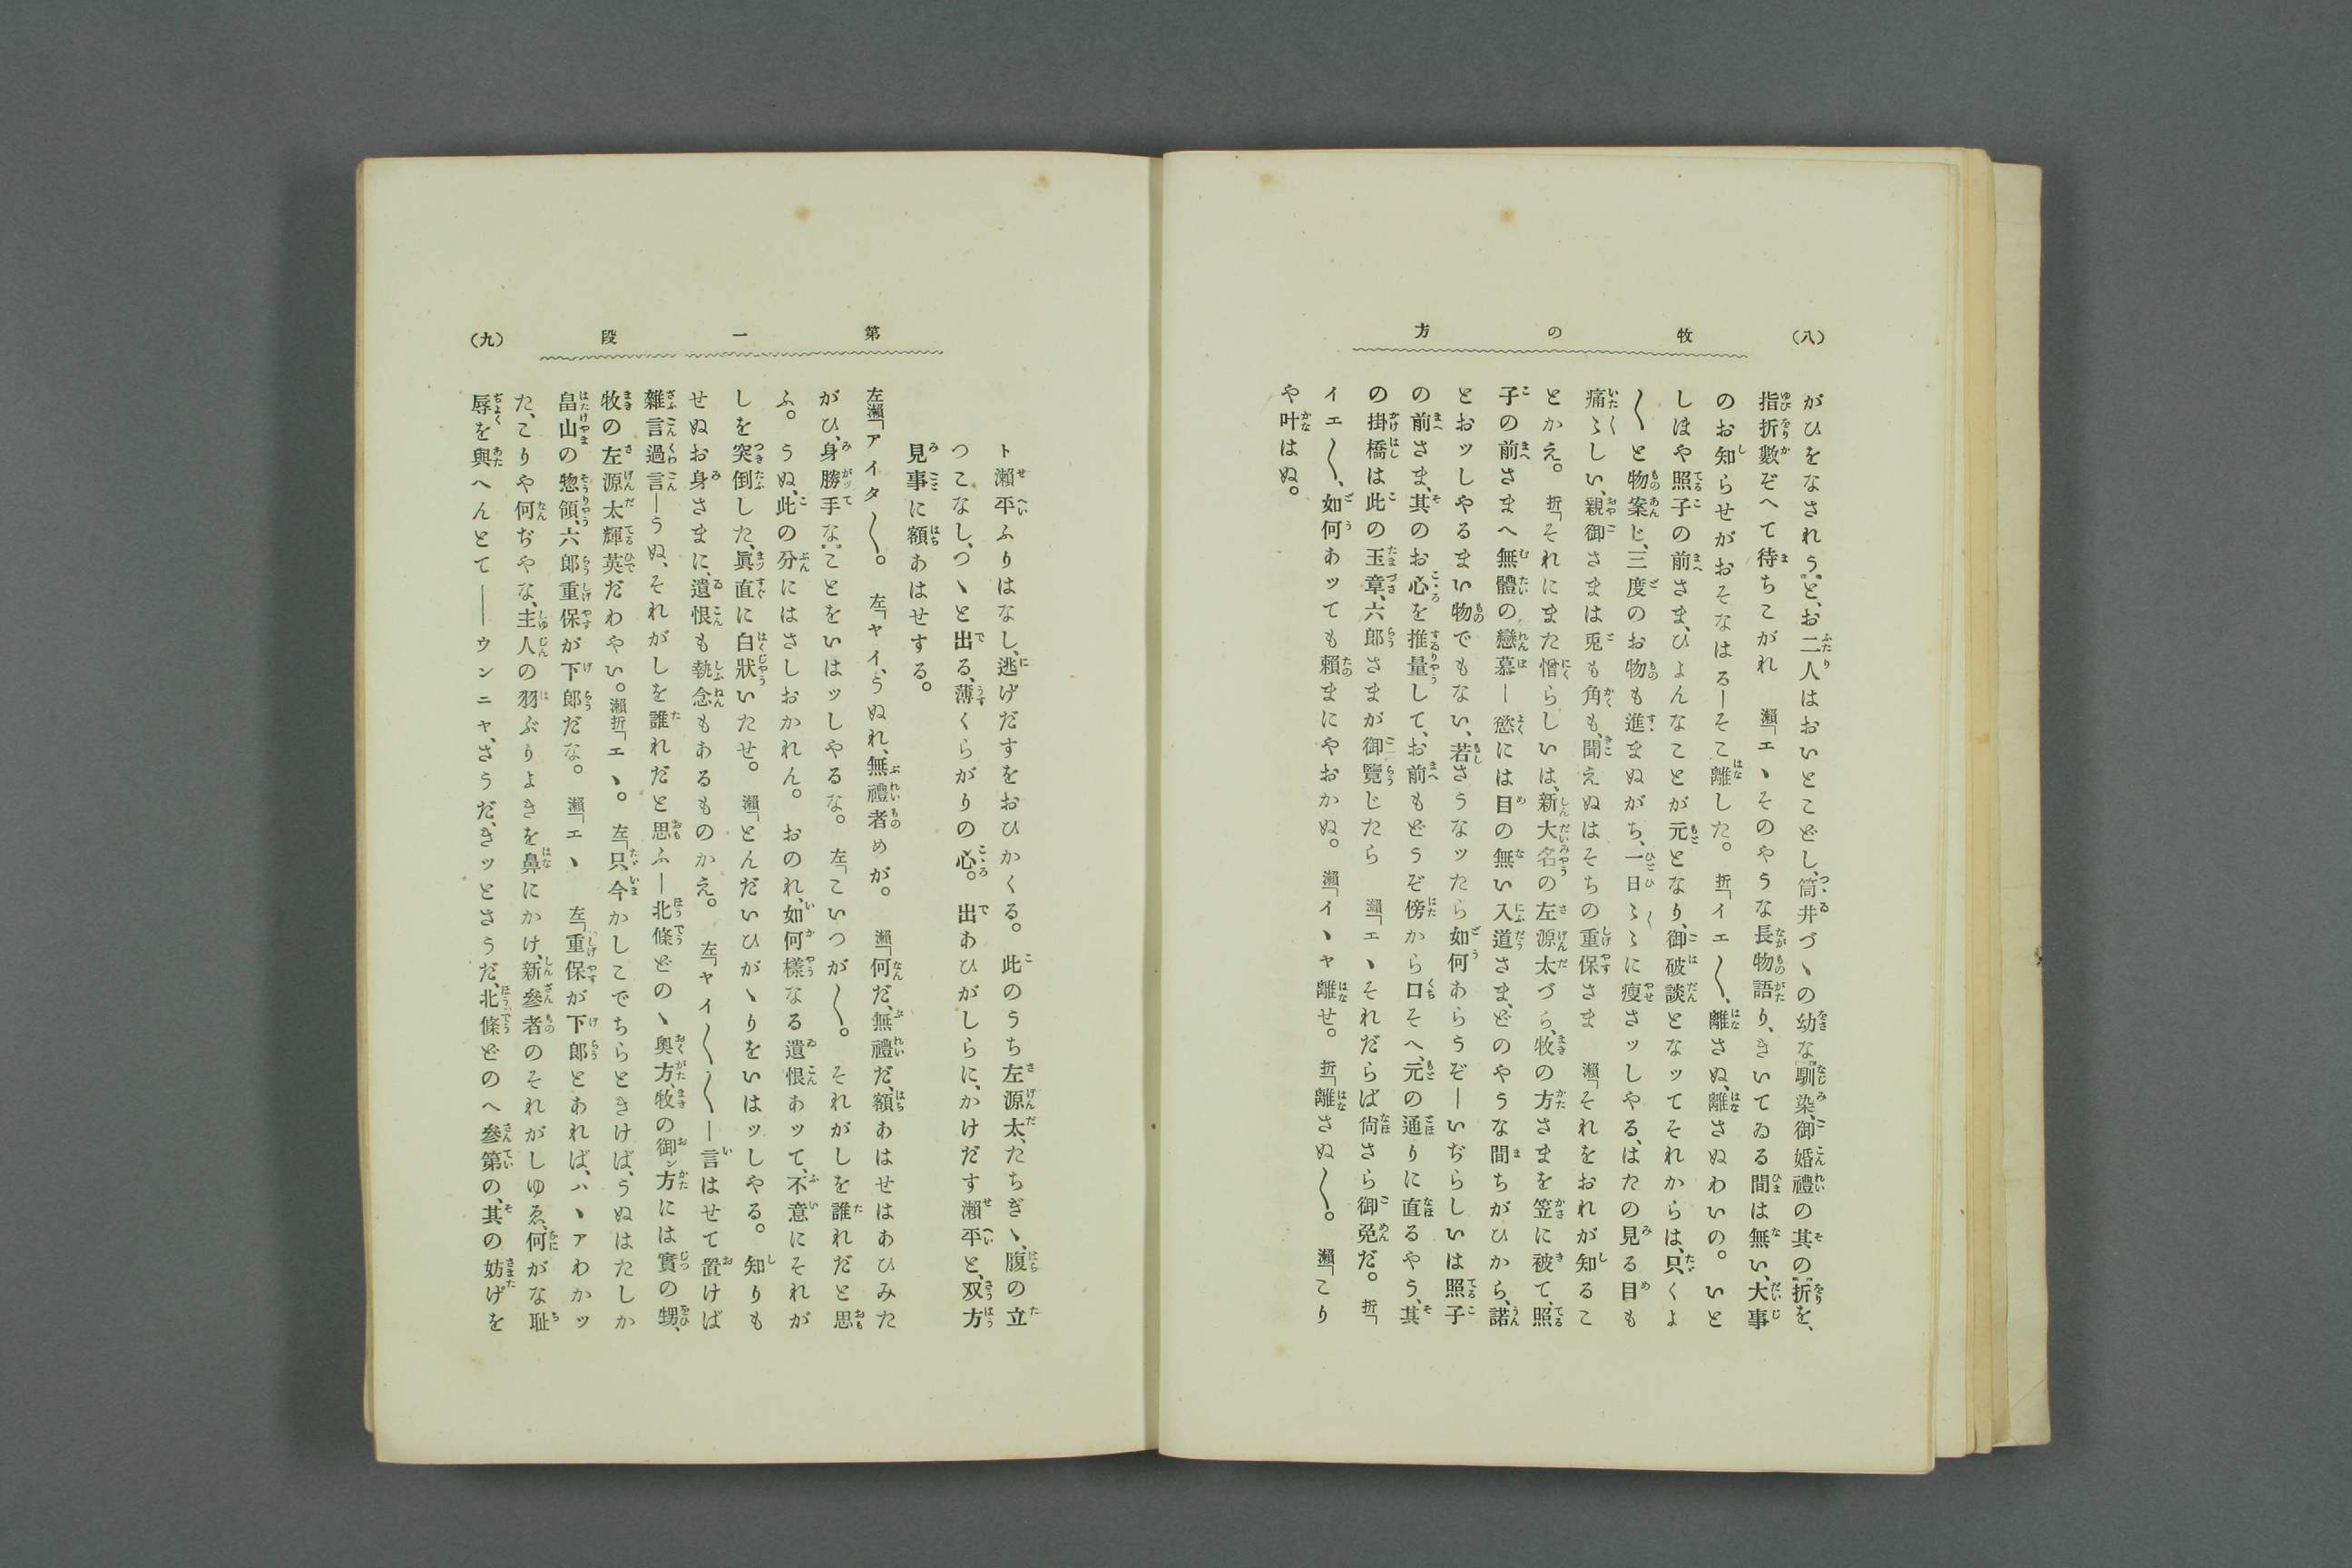 （八）
牧の方
がひをなされう』と、お二人はおいとこどし、筒井づゝの幼な『馴染、御婚禮の其の『折を、
指折數ぞへて待ちこがれ　瀬「エヽそのやうな長物語り、きいてゐる間は無い、大事
のお知らせがおそなはる―そこ離した。　折「イエ〳〵、離さぬ、離さぬわいの。　いと
しほや照子の前さま、ひよんなことが元となり、御破談となッてそれからは、只くよ
〳〵と物案じ、三度のお物も進まぬがち、一日〻〻に痩さッしやる、はたの見る目も
痛〻しい、親御さまは兎も角も、聞えぬはそちの重保さま　瀬「それをおれが知るこ
とかえ。　折「それにまた憎らしいは、新大名の左源太づら、牧の方さまを笠に被て、照
子の前さまへ無體の戀慕―慾には目の無い入道さま、どのやうな間ちがひから、諾
とおッしやるまい物でもない、若さうなッたら如何あらうぞ―いぢらしいは照子
の前さま、其のお心を推量して、お前もどうぞ傍から口そへ、元の通りに直るやう、其
の掛橋は此の玉章、六郎さまが御覽じたら　瀬「エヽそれだらば尙さら御免だ。　折「
イエ〳〵、如何あッても賴まにやおかぬ。　瀬「イヽヤ離せ。　折「離さぬ〳〵。　瀬「こり
や叶はぬ。
第一段
（九）
ト瀬平ふりはなし、逃げだすをおひかくる。　此のうち左源太、たちぎゝ、腹の立
つこなし、つゝと出る、薄くらがりの心。　出あひがしらに、かけだす瀬平と、双方
見事に額あはせする。
左瀬「アイタ〳〵。　左「ヤイ、うぬれ、無禮者めが。　瀬「何だ、無禮だ、額あはせはあひみた
がひ、身勝手なことをいはッしやるな。　左「こいつが〳〵。　それがしを誰れだと思
ふ。　うぬ、此の分にはさしおかれん。　おのれ、如何樣なる遺恨あッて、不意にそれが
しを突倒した、眞直に白狀いたせ。　瀬「とんだいひがゝりをいはッしやる。　知りも
せぬお身さまに、遺恨も執念もあるものかえ。　左「ヤイ〳〵〳〵―言はせて置けば
雜言過言―うぬ、それがしを誰れだと思ふ―北條どのゝ奧方、牧の御ン方には實の甥、
牧の左源太輝英だわやい。瀬折「エヽ。　左「只今かしこでちらときけば、うぬはたしか
畠山の惣領、六郎重保が下郎だな。　瀬「エヽ　左「重保が下郎とあれば、ハヽアわかッ
た、こりや何ぢやな、主人の羽ぶりよきを鼻にかけ、新參者のそれがしゆゑ、何がな恥
辱を與へんとて――ウンニヤ、さうだ、きッとさうだ、北條どのへ參第の、其の妨げを